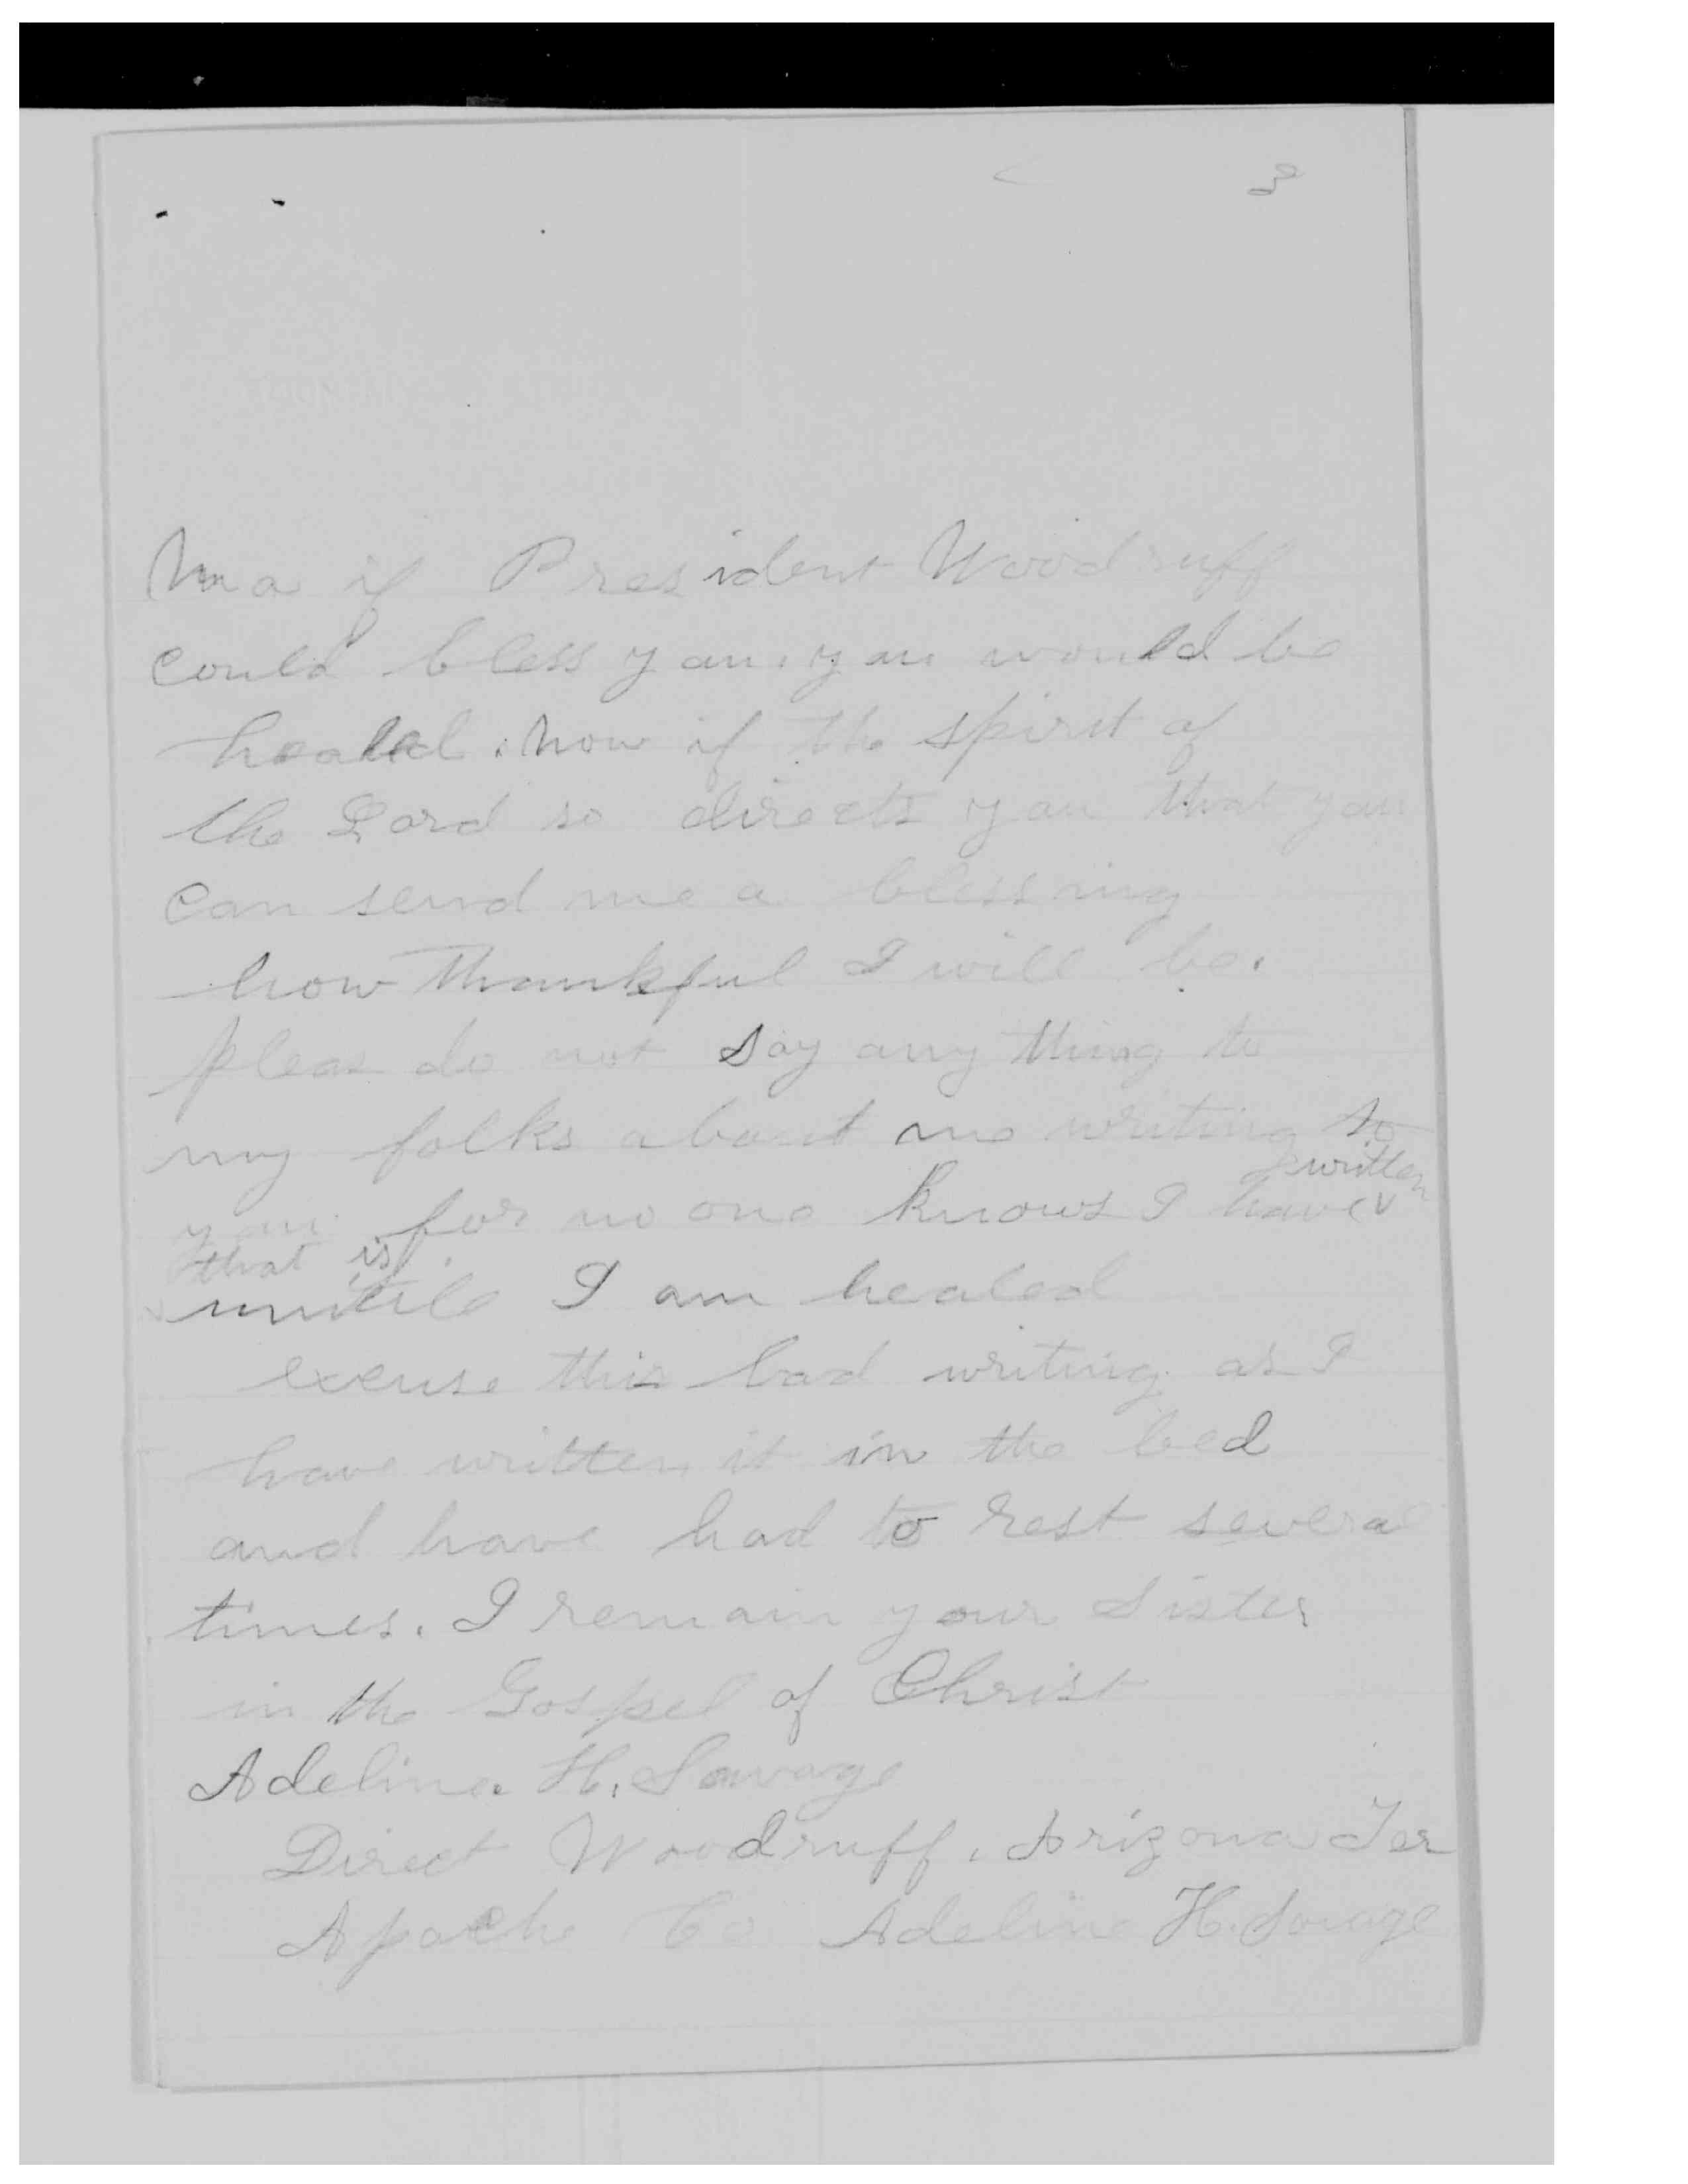 3
Ma if President Woodruff
could bless you, you would be
healed. now if the spirit of
the Lord so directs you that you
can send me a blessing
how thankful I will be.
pleas do not say any thing to
my folks about me writing to
written
you for no one knows I have
that is
untile I am healed
excuse this bad writing as I
have written it in the bed
and have had to rest several
times. I remain your Sister
in the Gospel of Christ
Adeline H. Savage
Direct Woodruff, Arizona Ter
Apache Co Adeline H. Savage